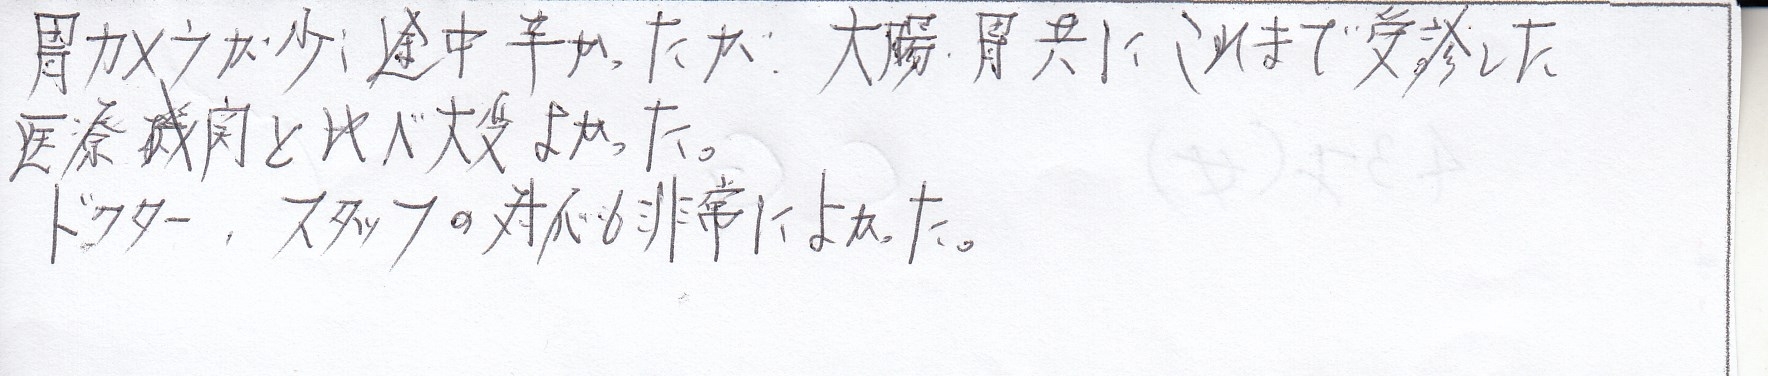 胃カメラが少し途中辛かったが、大腸・胃共にこれまで受診した
医療機関と比べ大変よかった。
ドクター、スタッフの対応も非常によかった。